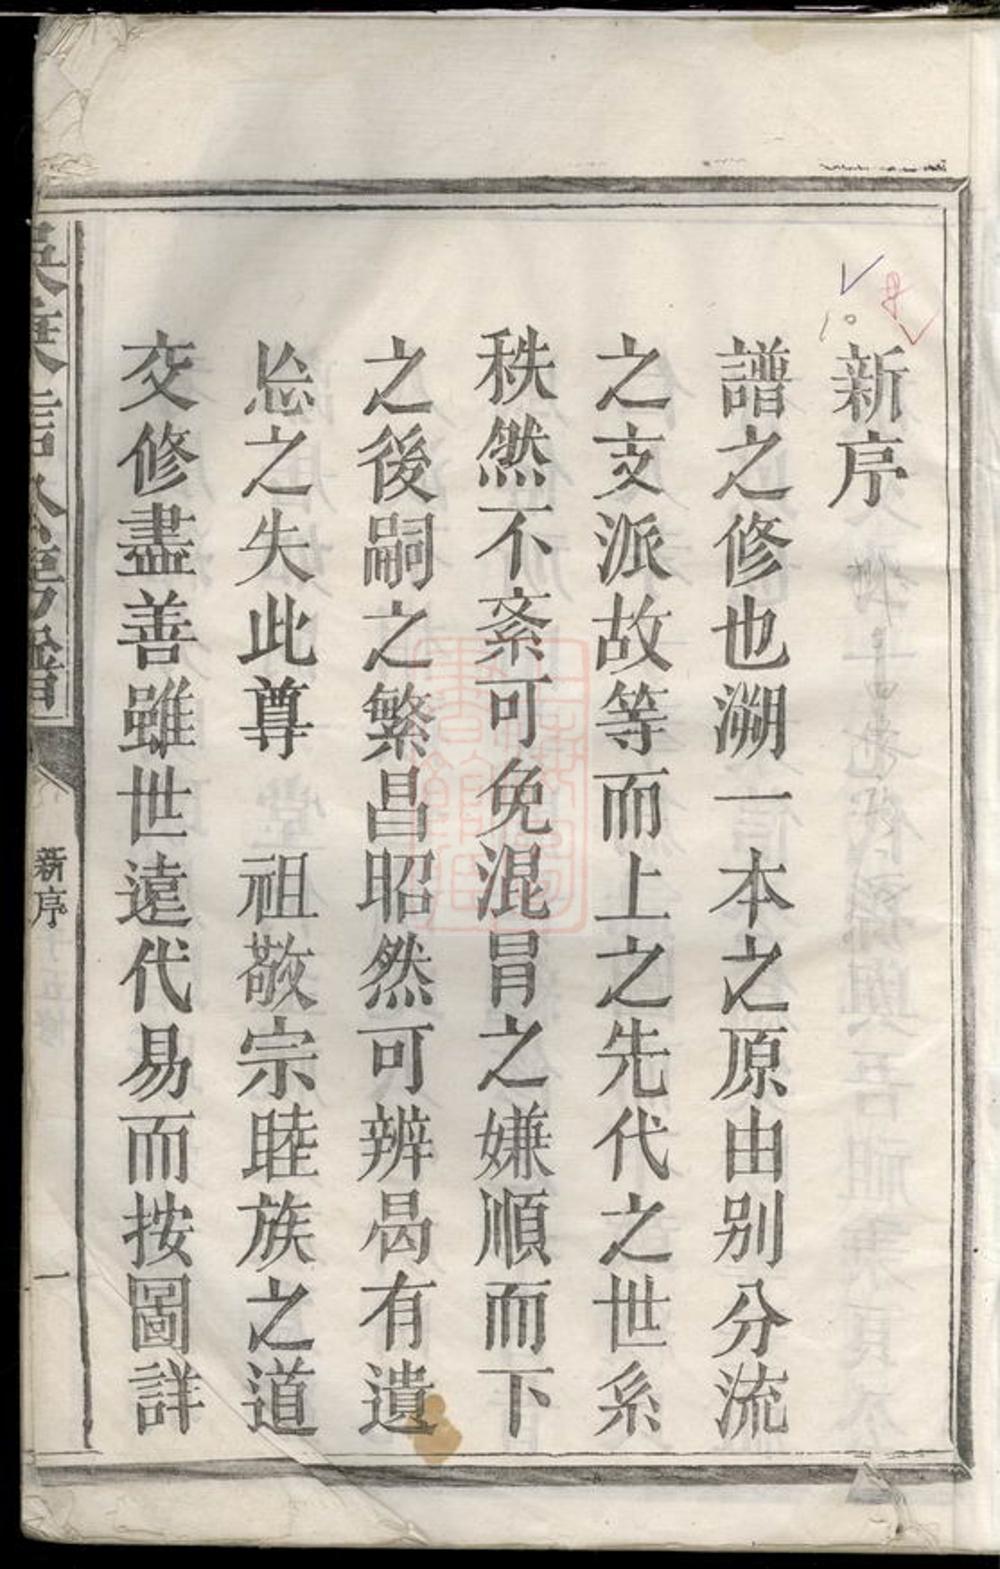 新序
譜之修也溯一本之原由別分流
之支派故等而上之先代之世系
秩然不紊可免混冒之嫌順而下
之後嗣之繁昌昭然可辨曷有遺
忘之失此尊 祖敬宗睦族之道
交修盡善雖世遠代易而按圖詳
新序
一